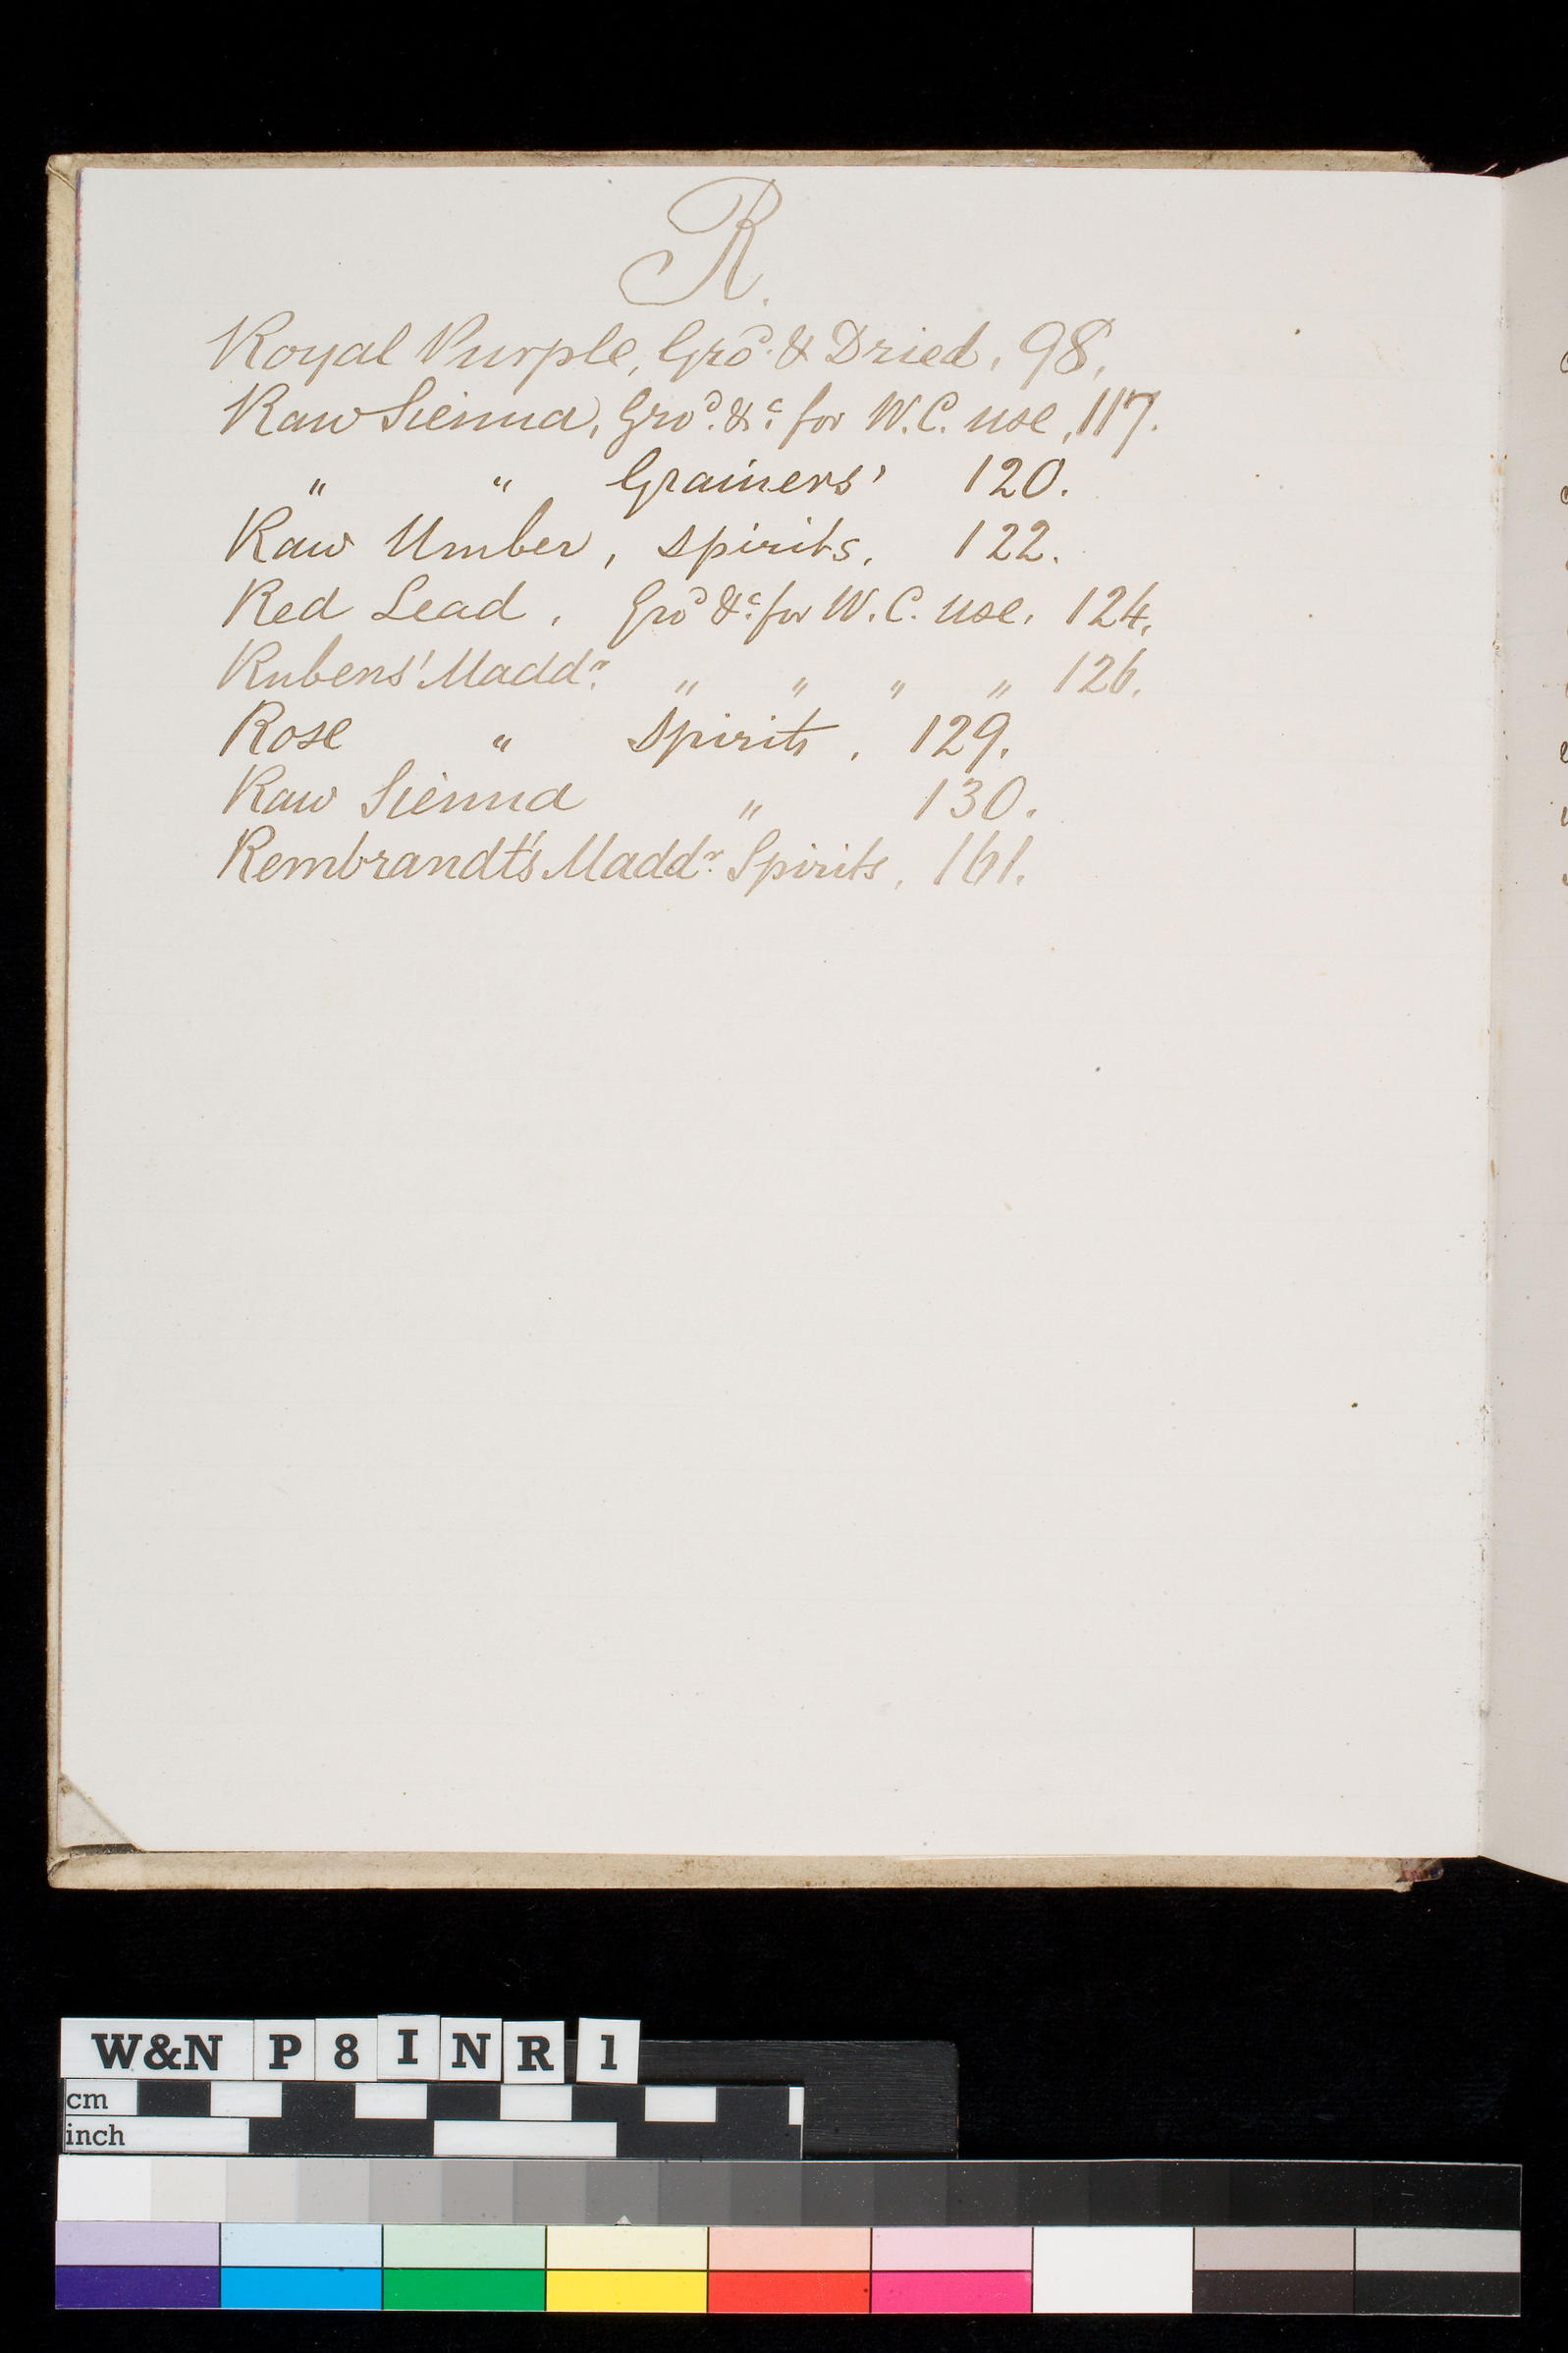 R.
Royal Purple, Gro^d. & Dried, 98.
Raw Sienna, Gro^d. &^c. for W.C. use, 117.
" " Grainers' 120.
Raw Umber, spirits, 122.
Red Lead, Gro^d &^c. for W.C. use, 124.
Rubens' Madd^r. " " " " 126.
Rose " Spirits, 129.
Raw Sienna " 130.
Rembrandt's Madd^r. Spirits, 161.
W&N P 8 I N R 1
cm
inch